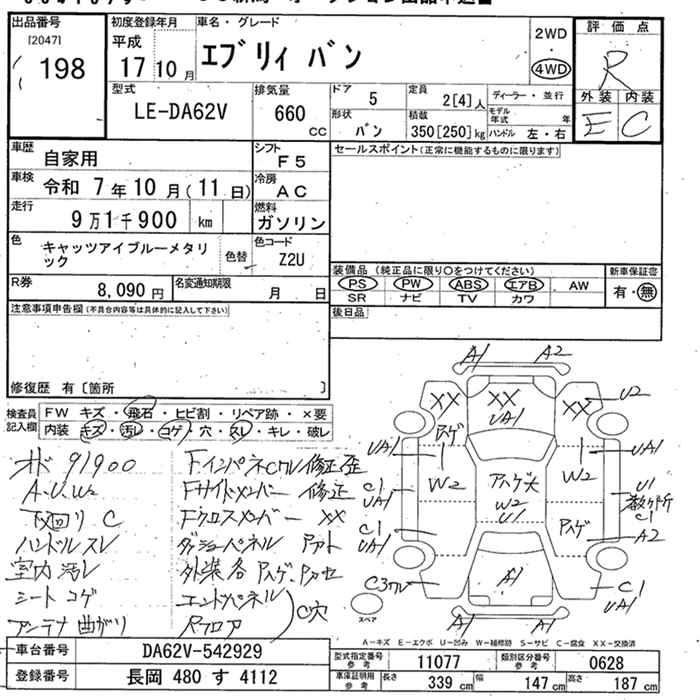 出品番号
[2047]
198
初度登録年月
平成
17 10 月
車名・グレード
エブリィ バン
2WD
4WD
評価点
R
外装 内装
E C
型式
LE-DA62V
排気量
660 cc
ドア
5
定員
2[4]人
ディーラー・並行
形状
バン
積載
350[250]kg
モデル年式 年
ハンドル 左・右
車歴
自家用
シフト
F5
車検
令和 7年10月(11日)
冷房
AC
走行
9万1千900 km
燃料
ガソリン
色
キャッツアイブルーメタリ
ック
色替
色コード
Z2U
R券
8,090円
名変通知期限
月 日
セールスポイント(正常に機能するものに限ります)
装備品(純正品に限り○をつけてください)
新車保証書
PS PW ABS エアB AW
有・無
SR ナビ TV カワ
後日品
注意事項申告欄(不具合内容等は具体的に記入して下さい)
修復歴 有[箇所 ]
検査員
記入欄
FW キズ・飛石・ヒビ割・リペア跡・×要
内装 キズ・汚レ・コゲ・穴・スレ・キレ・破レ
オド 91900
A.U.W2
下回り C
ハンドルスレ
室内汚レ
シートコゲ
アンテナ曲がり
FインパネCワレ修正歪
Fサイドメンバー 修正
Fクロスメンバー XX
ダッシュパネル
外装各
エンドパネル
Rフロア
C穴
A1 A2
XX XX XX U2
UA1
アスゲ
UA1 UA1
W2 W2
C1
UA1
アハゲ大
W2
U1
U1
数ヶ所
C1
A2
C1
UA1
アスゲ
C3ワレ
A1
C1
UA1
A1 A2
スペア
A-キズ E-エクボ U-凹み W-補修跡 S-サビ C-腐食 XX-交換済
車台番号
DA62V-542929
型式指定番号
参考
11077
類別区分番号
参考
0628
登録番号
長岡 480 す 4112
車庫証明用
参考
長さ 339 cm
幅 147 cm
高さ 187 cm